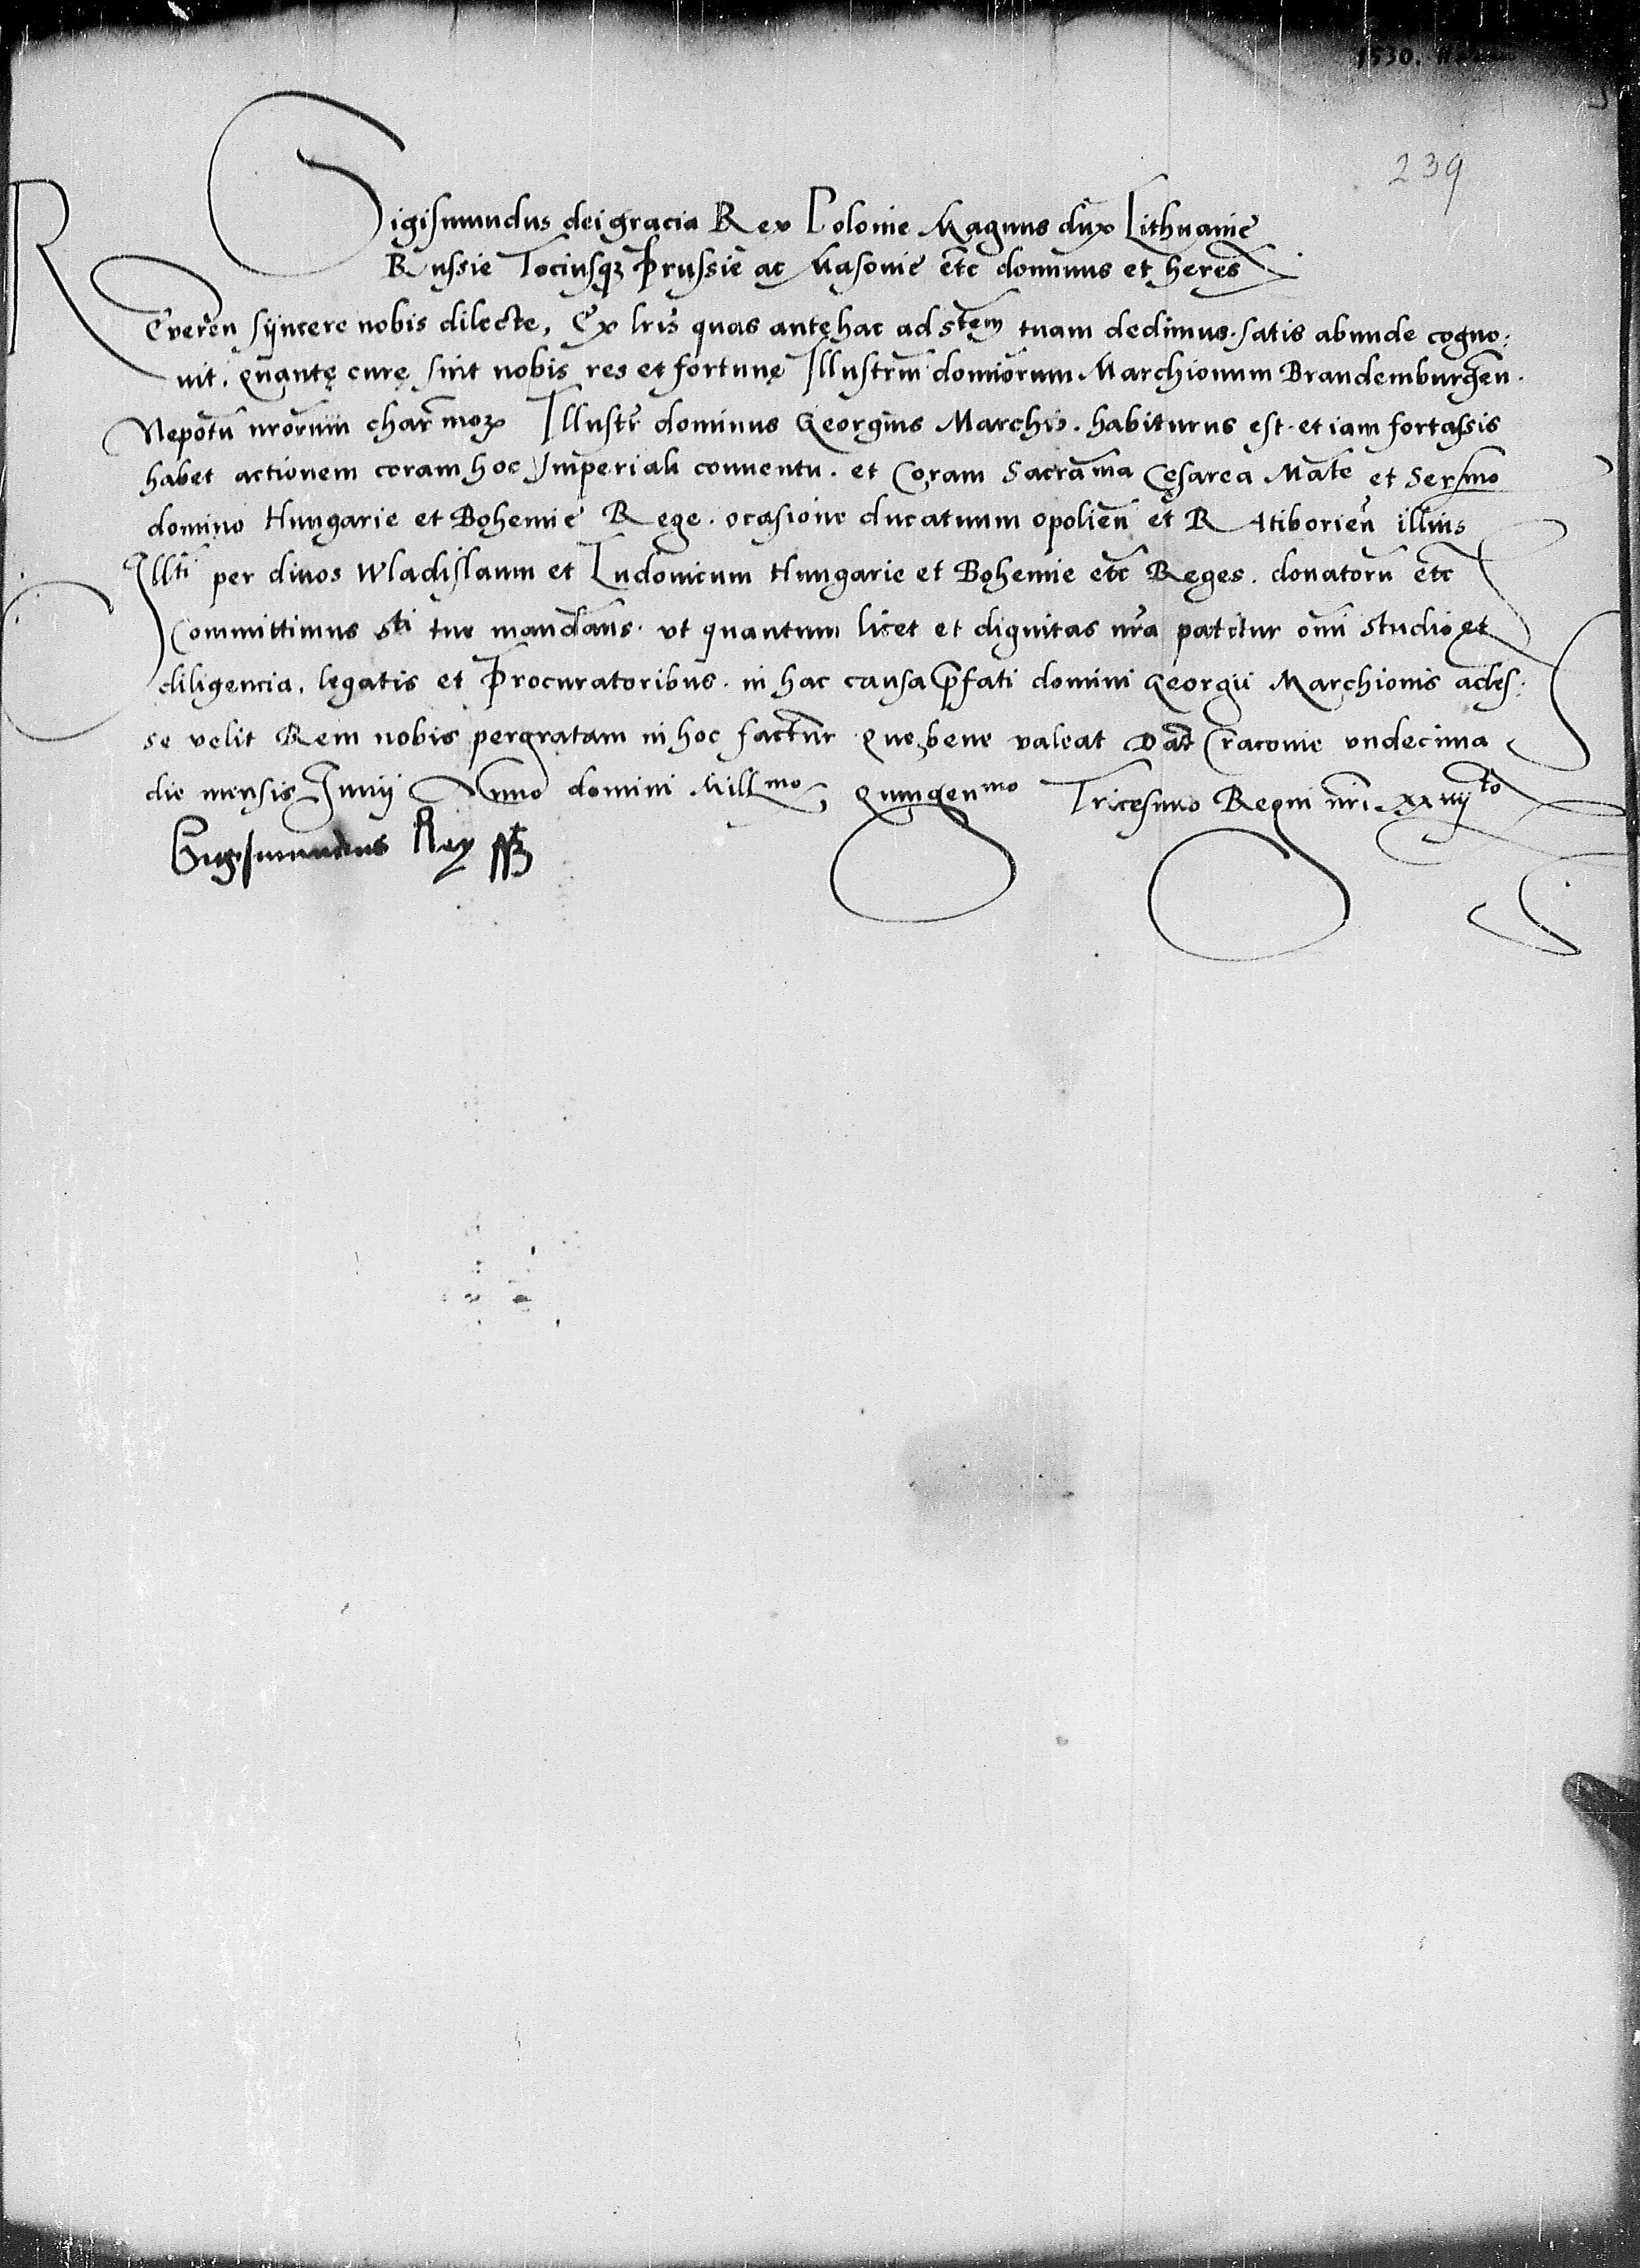 1530.
239
Sigismundus dei gracia Rex Polonie Magnus dux Lithuanie
Russie Tociusqȝ Prussie ac Masovie etc dominus et heres
Reveren̄ syncere nobis dilecte, Ex lr̄is quas antęhac ad Stēm tuam dedimus. satis abunde cogno:
vit. quantę curę sint nobis res et fortunę Illustriū dominorum Marchionum Brandemburgen̄.
Nepotū nr̄orum char̄moꝝ Illustr̄ dominus Georgius Marchio. habiturus est. et iam fortassis
habet actionem coram hoc Imperiali conventu. et Coram Sacra ma Cęsarea Mate et Sersmo
domino Hungarie et Bohemie Rege. ocasione ducatuum opolien̄ et Ratiborien̄ illius
Illti per divos Wladislaum et Ludovicum Hungarie et Bohemie etc Reges. donatorū etc
Committimus Sti tue mandan̄s. ut quantum licet et dignitas nr̄a patitur om̄i studio et
diligencia, legatis et Procuratoribus. in hac causa p̄fati domini Georgii Marchionis ades:
se velit Rem nobis pergratam in hoc factur̄ que bene valeat Dat̄ Cracovie undecima
die mensis Junij Anno domini Mill mo quingen mo Tricesimo Regni nr̄i xxiiij to
Sigismundus Rex